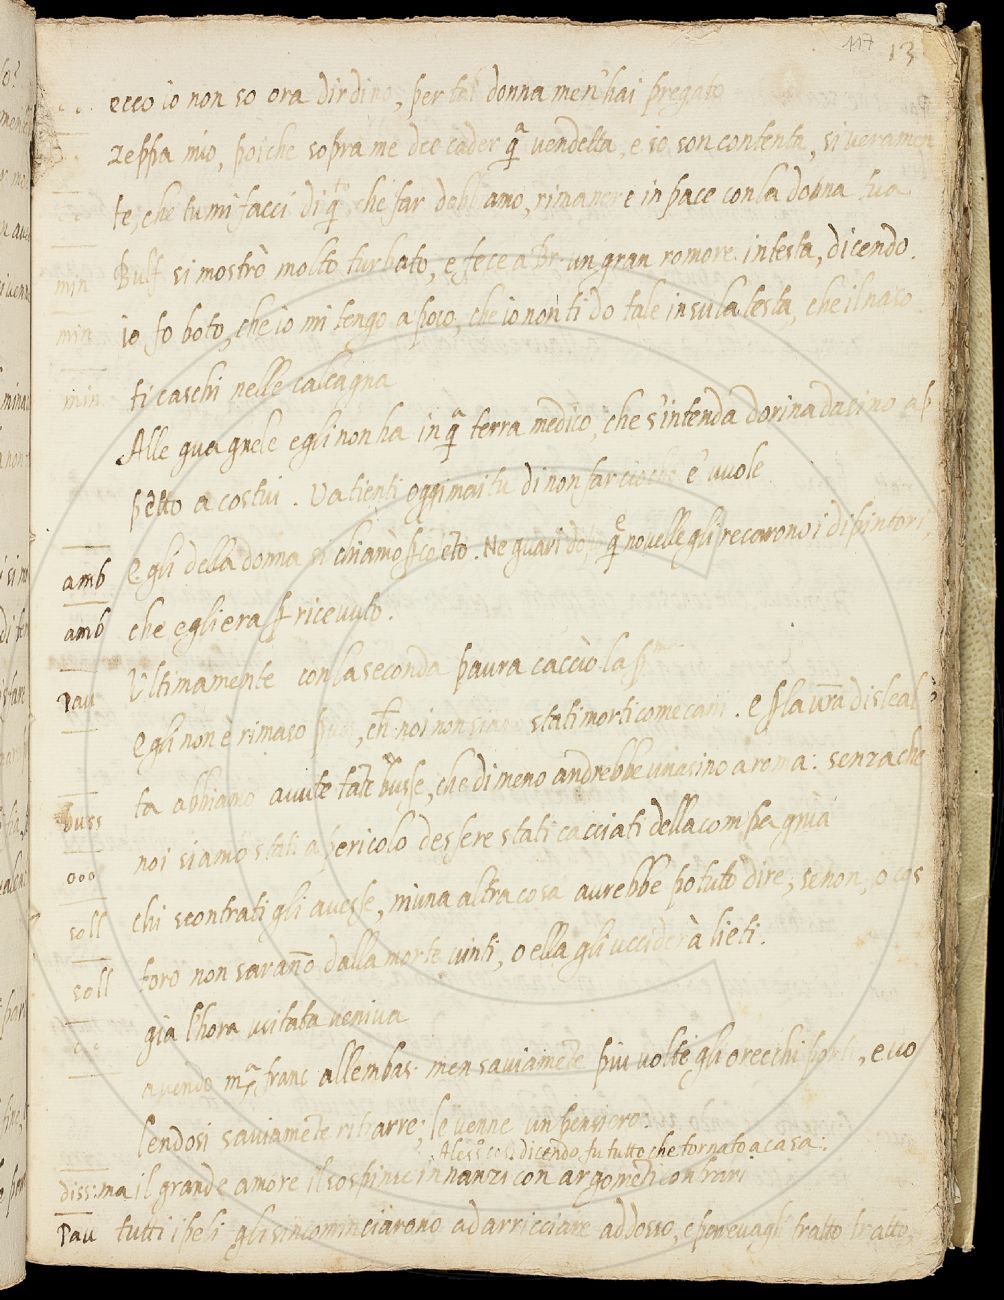 117 13
ecco io non so ora dir di no, per tal donna men'hai pregato
zeppa mio, poiche sopra me dee cader qª vendetta, e io son contenta, si veramen
te, che tu mi facci di qto, che far dobbiamo, rimanere in pace con la donna tua
min Bulf. si mostrò molto turbato, e fece a Br. un gran romore in testa, dicendo.
min io fo boto, che io mi tengo a poco, che io non ti do tale in su la testa, che il naso
min ti caschi nelle calcagna
Alle guagnele egli non ha in qª terra medico, che s'intenda d'orina d'asino a ri
spetto a costui. Va tienti oggimai tu di non far cioche e' vuole
amb Egli della donna si chiamò Ne guari qe novelle gli recarono i dipintori,
amb che egli era ricevuto.
Pau Ultimamente con la seconda paura cacciò la pma
Egli non è rimaso ch noi non siamo stati morti come cani. E la vra disleal
buss ta abbiamo avute tate busse, che di meno andrebbe un asino a roma: senza che
ooo noi siamo stati a pericolo dessere stati cacciati della compagnia
soll chi scontrati gli avesse, niuna altra cosa avrebbe potuto dire, senon, o cos
soll toro non saranno dalla morte vinti, o ella gli ucciderà lieti.
già l'hora usitata veniva
avendo mª franc allembas. men saviamete piu volte gli orecchi porti, e vo
lendosi saviamete ritrarre; le venne un pensiero
Aless° così dicendo, fu tutto che tornato a casa:
diss: ma il grande amore il sospinse innanzi con argometi contrari
Pau tutti i peli gli sincominciarono ad arricciare addosso, e parevagli tratto tratto,